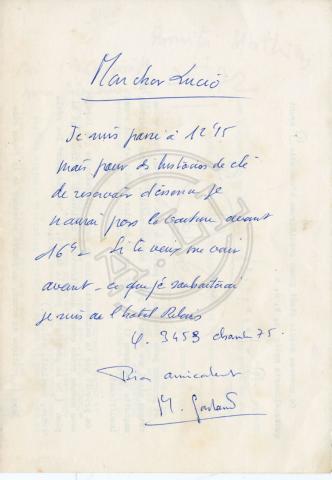 Mon cher Lucio
Je suis passé à 12h15
mais pour des histoires de clé
de reservoir d'essence je
n'aurai pas la voiture avant
16h - Si tu veux me voir
avant - ce que je souhaiterai
je suis de l'hotel Relais
3453 chamb 75.
Bien amicalement
M.